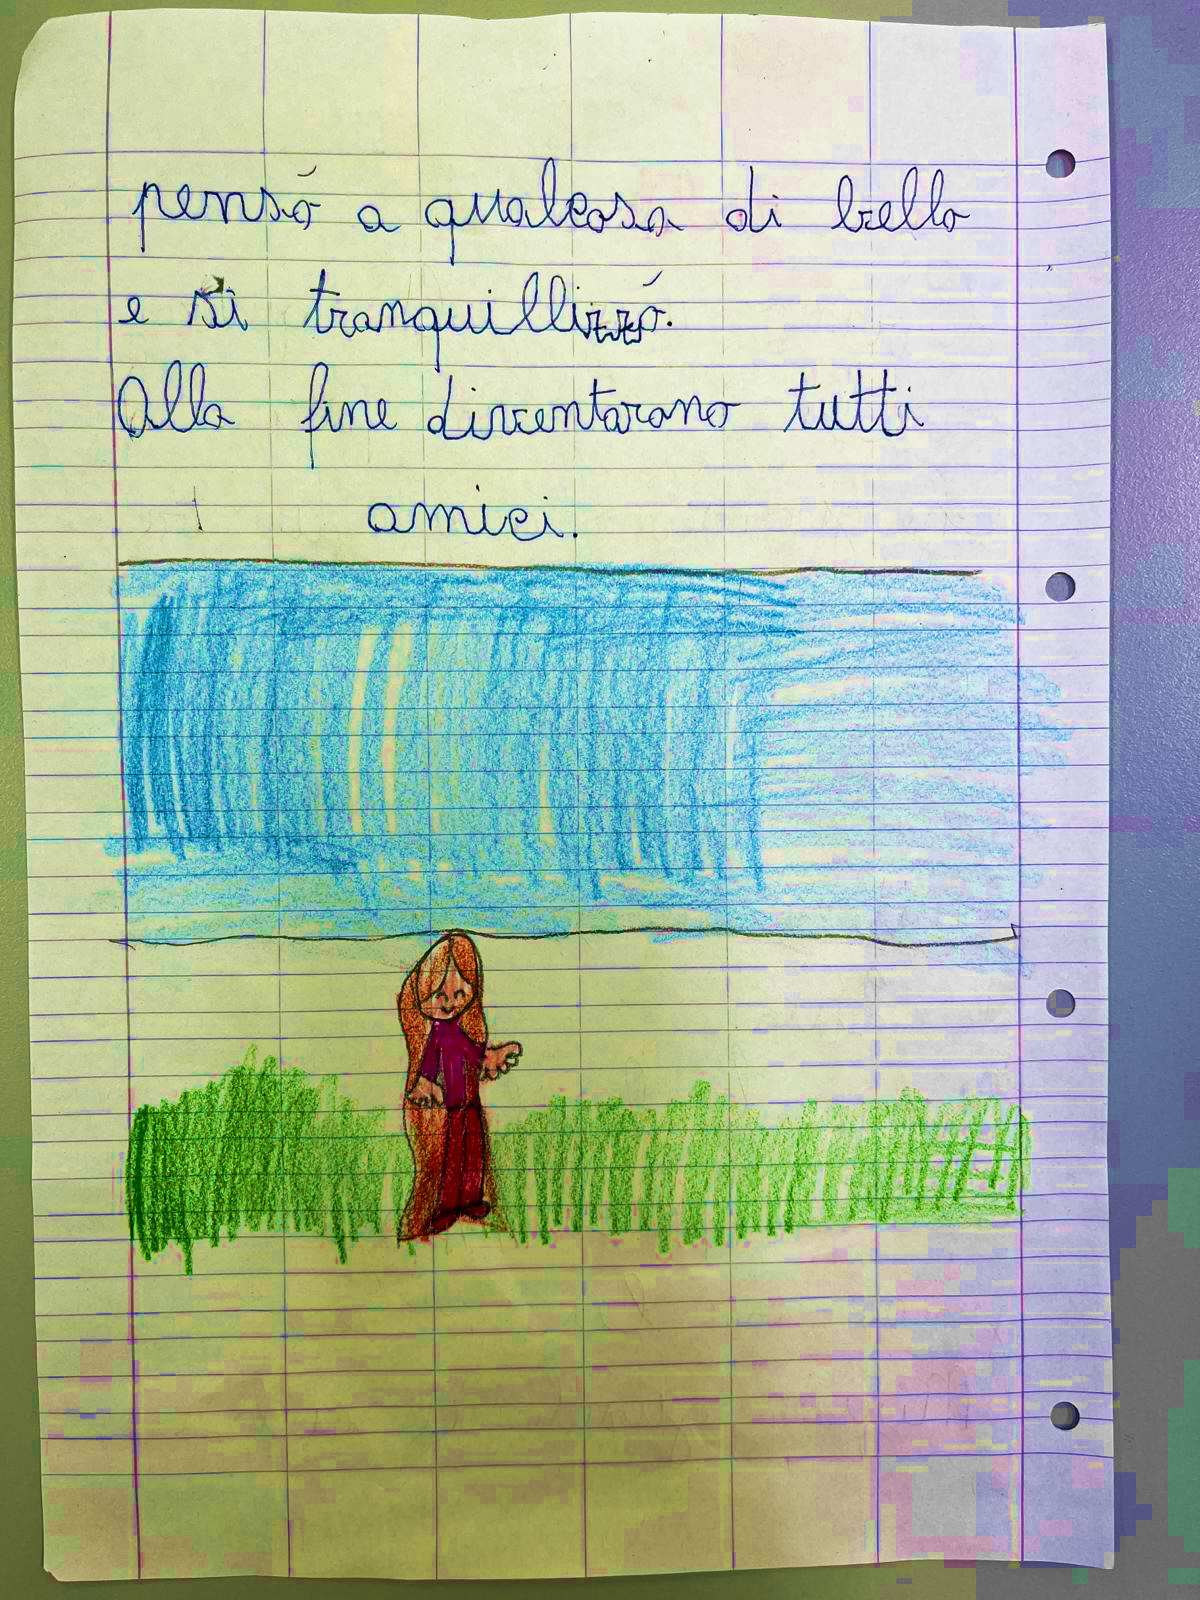 pensó a qualcosa di bello
e si tranquillizzó.
Alla fine diventarano tutti
amici.